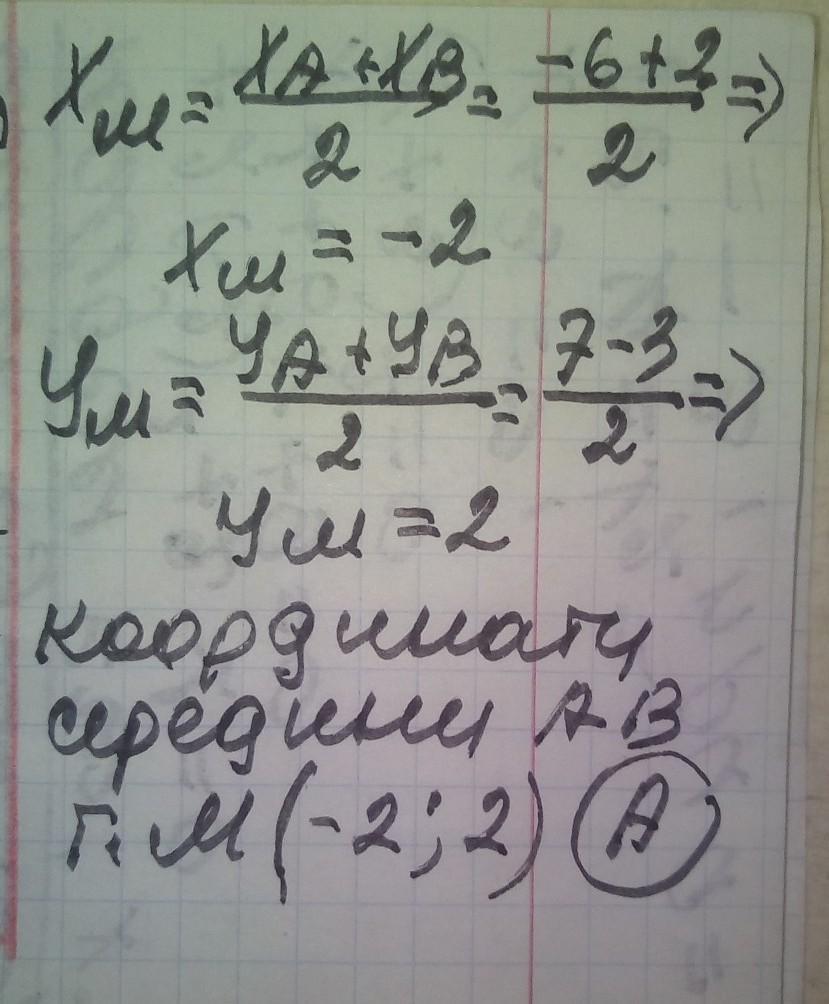 Xм = (XA + XB)/2 = (-6+2)/2 =>
Xм = -2
Yм = (YA + YB)/2 = (7-3)/2 =>
Yм = 2
координати
середини AB
т. M (-2; 2) A